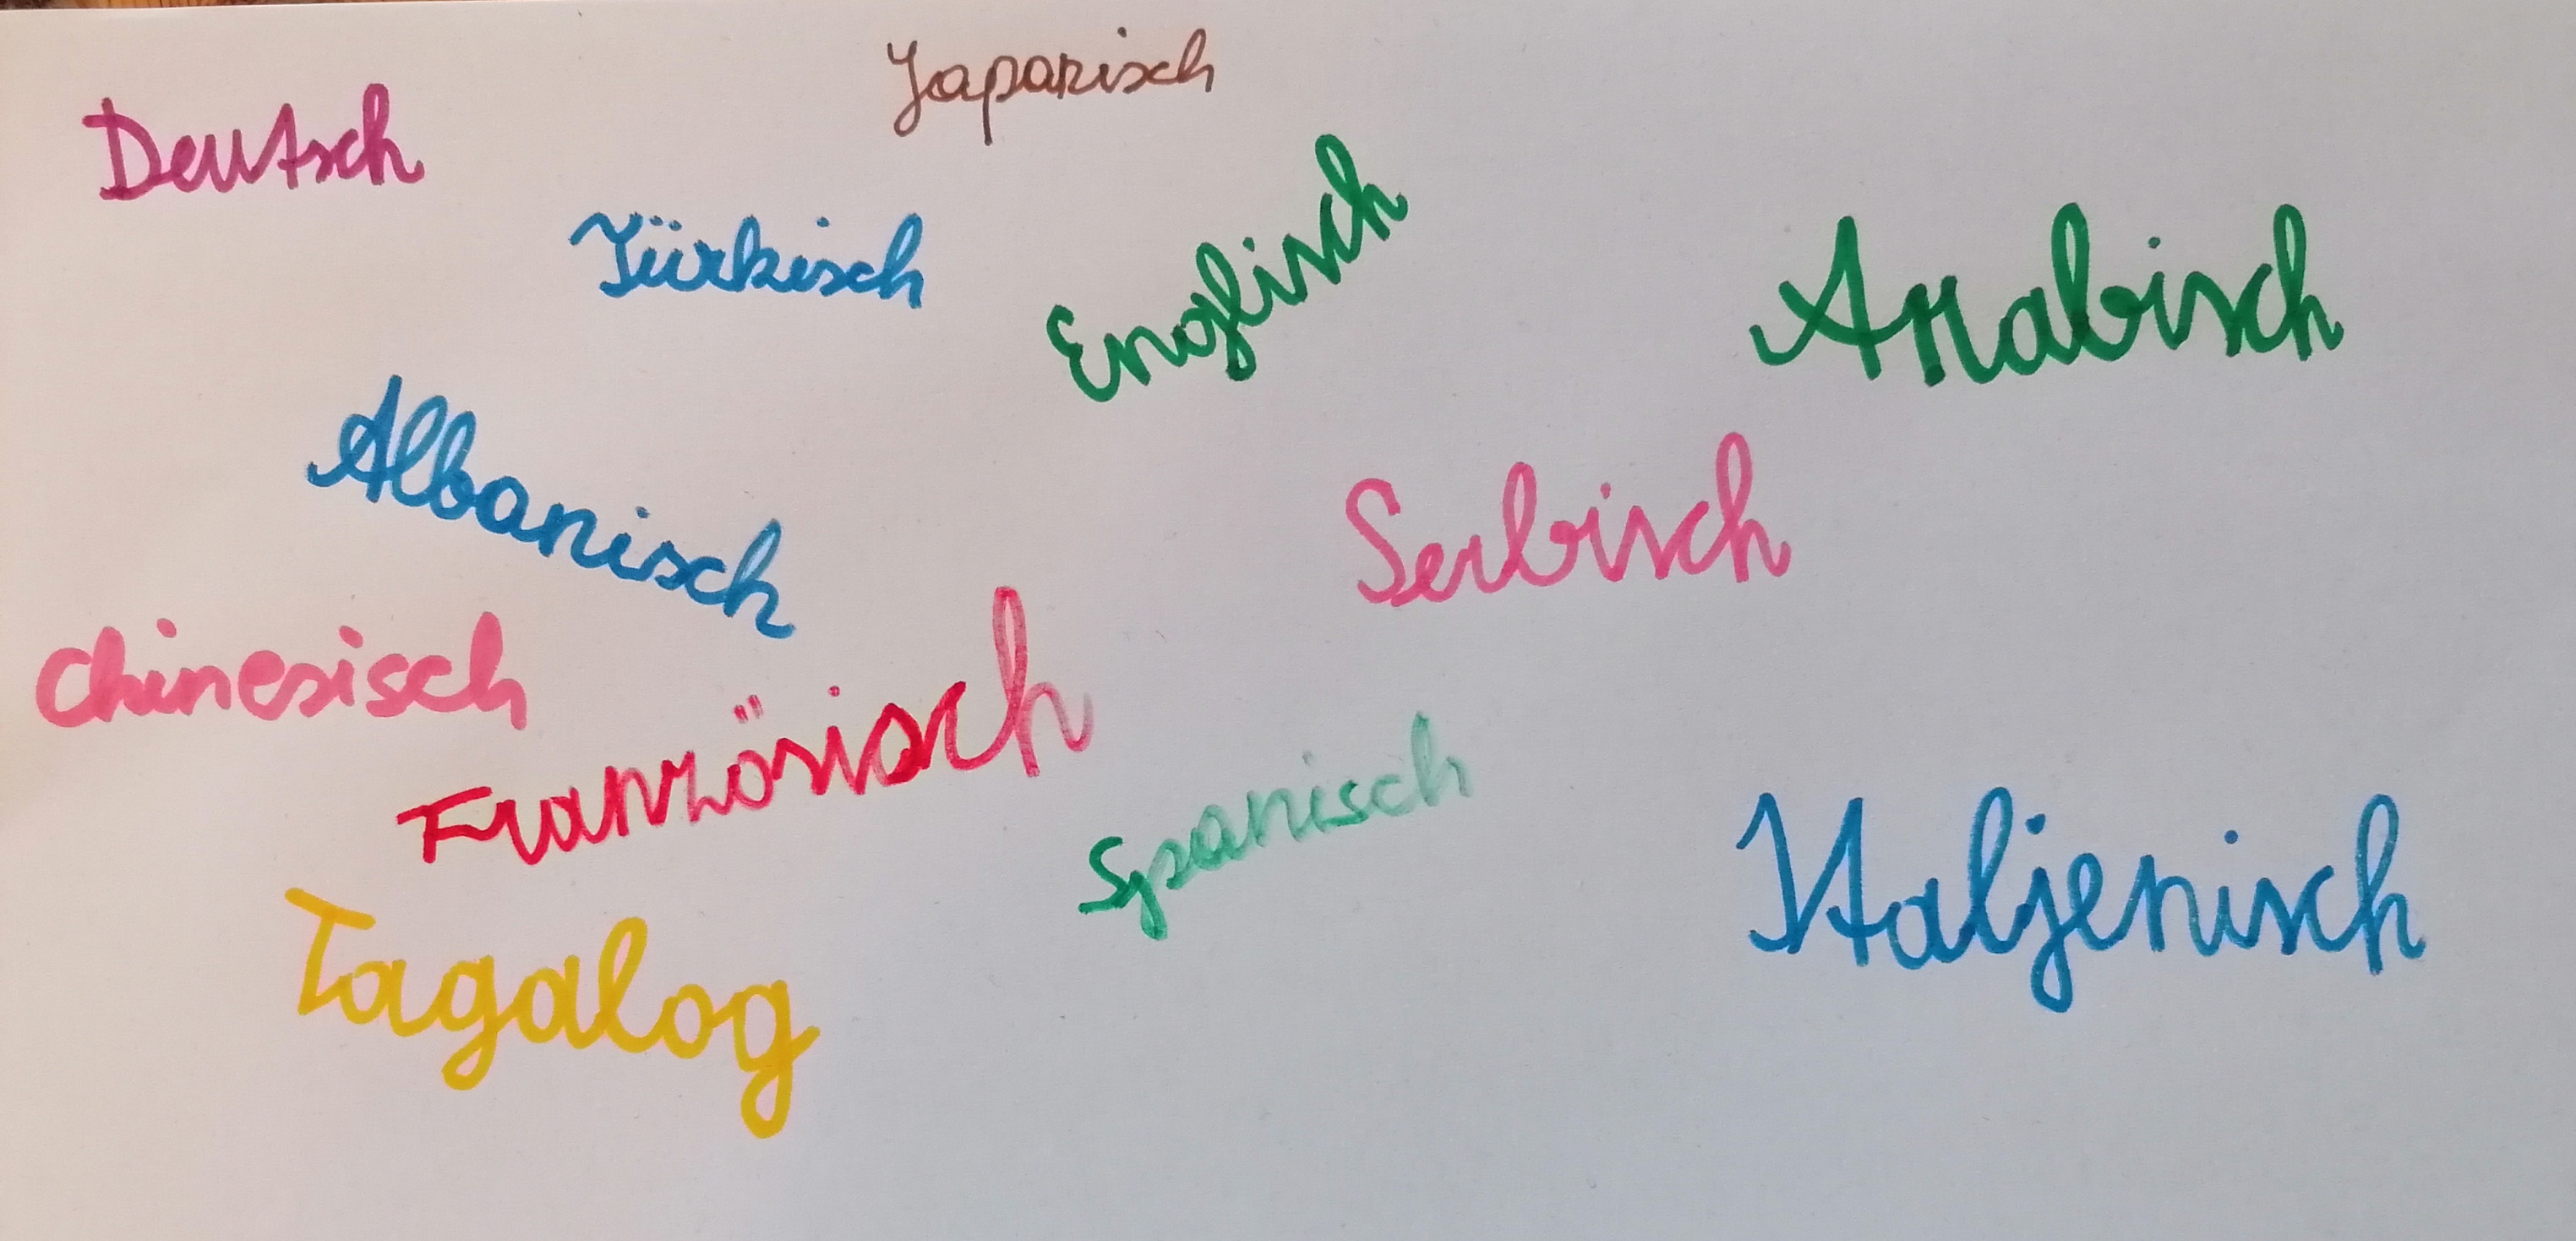 Japanisch
Deutsch
Türkisch
Englisch
Arabisch
Albanisch
Serbisch
Chinesisch
Französisch
Spanisch
Italjenisch
Tagalog